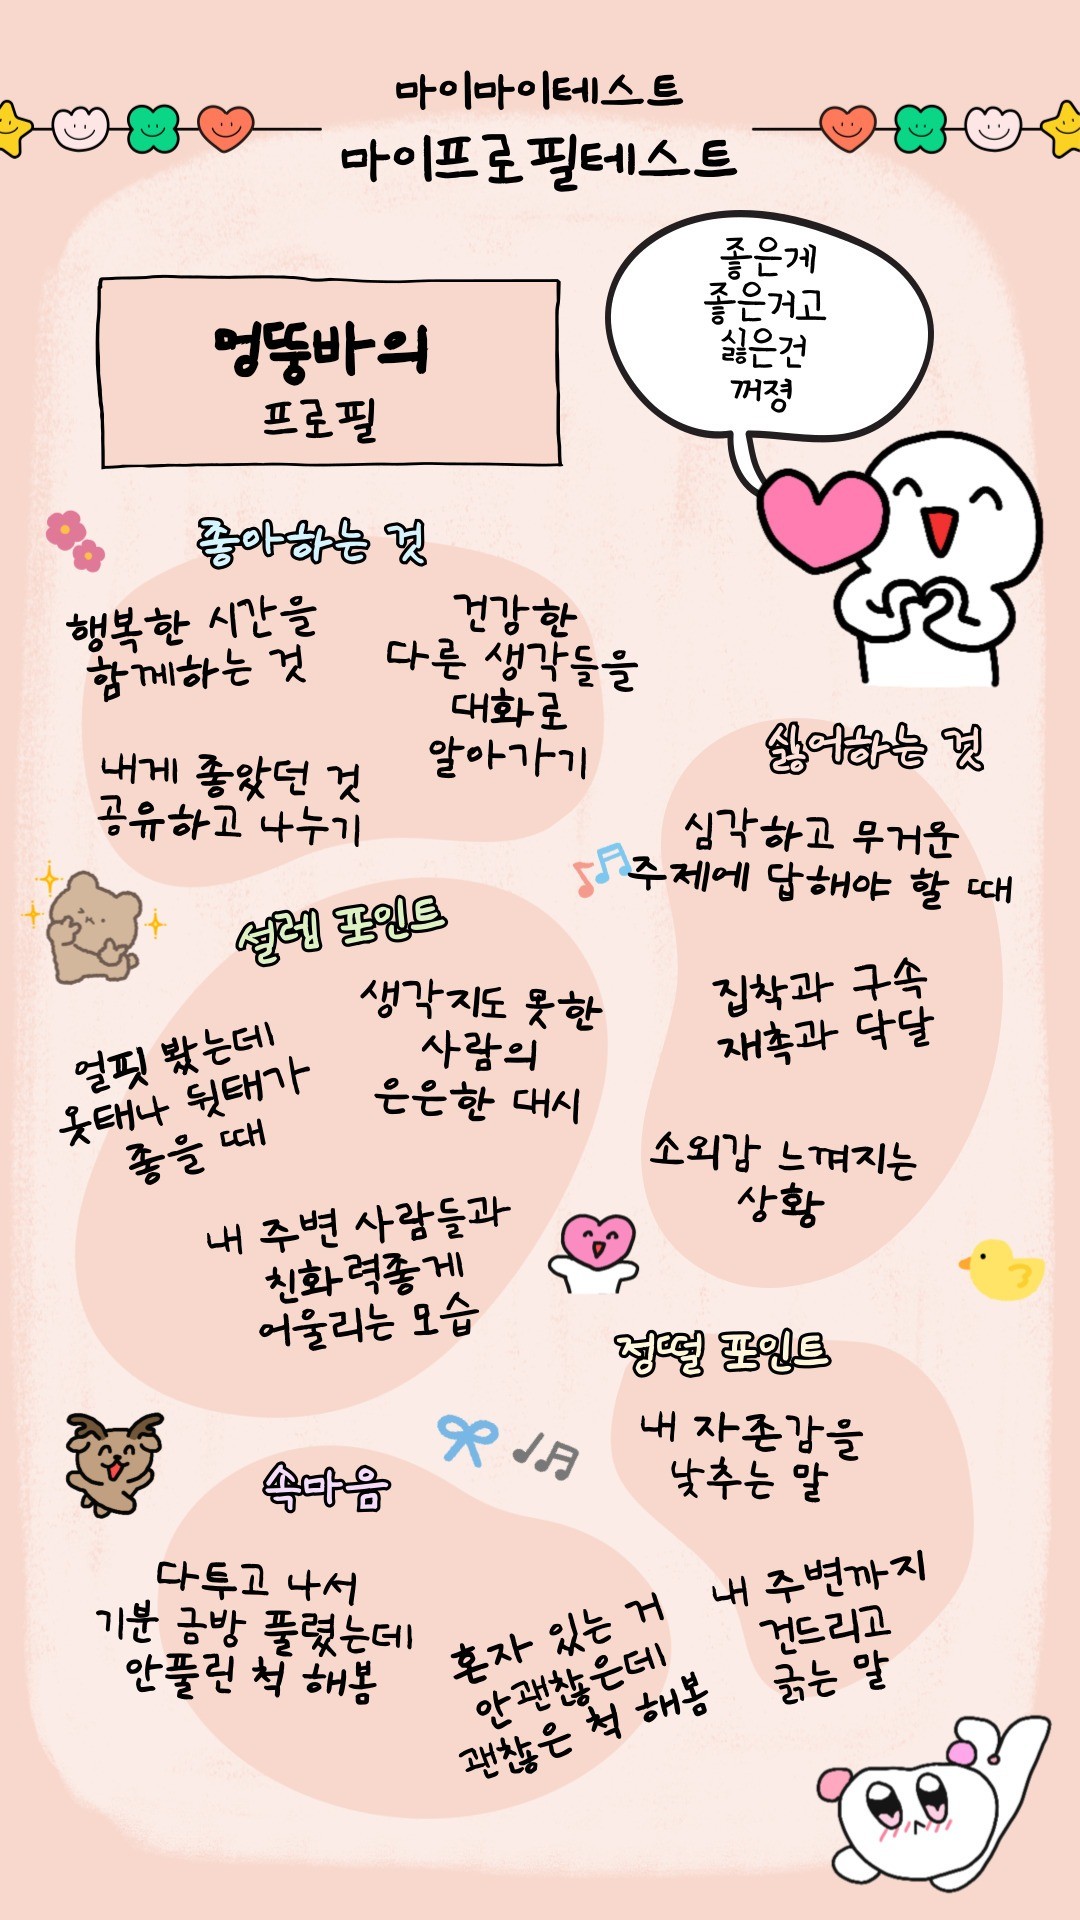 마이마이테스트
마이프로필테스트
좋은게
좋은거고
싫은건
꺼졍
멍뚱바의
프로필
좋아하는 것
행복한 시간을
함께하는 것
건강한
다른 생각들을
대화로
알아가기
내게 좋았던 것
공유하고 나누기
싫어하는 것
심각하고 무거운
주제에 답해야 할 때
집착과 구속
재촉과 닥달
소외감 느껴지는
상황
설렘 포인트
생각지도 못한
사람의
은은한 대시
얼핏 봤는데
옷태나 뒷태가
좋을 때
내 주변 사람들과
친화력좋게
어울리는 모습
정떨 포인트
내 자존감을
낮추는 말
내 주변까지
건드리고
긁는 말
속마음
다투고 나서
기분 금방 풀렸는데
안풀린 척 해봄
혼자 있는 거
안괜찮은데
괜찮은 척 해봄